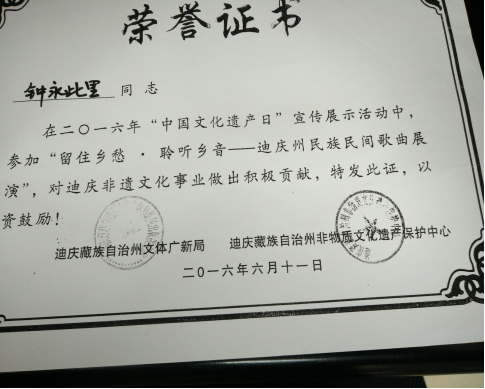 荣誉证书
钟永此里 同志
在二〇一六年“中国文化遗产日”宣传展示活动中，
参加“留住乡愁·聆听乡音——迪庆州民族民间歌曲展
演”，对迪庆非遗文化事业做出积极贡献，特发此证，以
资鼓励！
迪庆藏族自治州文体广新局 迪庆藏族自治州非物质文化遗产保护中心
二〇一六年六月十一日